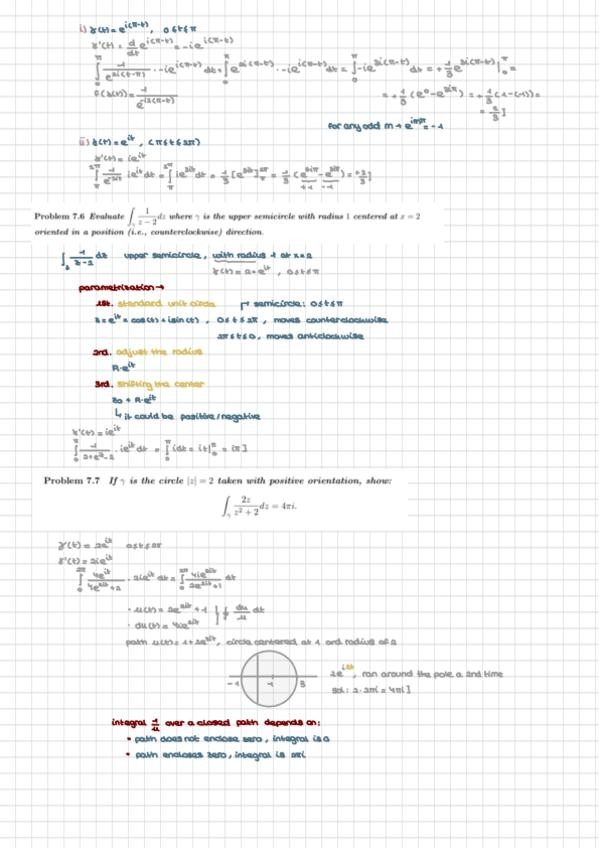 i) γ(t) = e^{i(π-t)}, 0≤t≤π
γ'(t) = d/dt e^{i(π-t)} = -ie^{i(π-t)}
∫_0^π 1/e^{2i(t-π)} · -ie^{i(π-t)} dt = ∫_0^π e^{2i(π-t)} · -ie^{i(π-t)} dt = ∫_0^π -ie^{3i(π-t)} dt = + 1/3 e^{3i(π-t)} |_0^π =
= + 1/3 (e^0 - e^{3iπ}) = + 1/3 (1-(-1)) =
= 2/3 ]
for any odd m → e^{imπ} = -1
ii) γ(t) = e^{it}, (π≤t≤2π)
γ'(t) = ie^{it}
Problem 7.6 Evaluate ∫_γ 1/(z-2) dz where γ is the upper semicircle with radius 1 centered at z = 2
oriented in a position (i.e., counterclockwise) direction.
∫_γ 1/(z-2) dz upper semicircle, with radius 1 at x=2
γ(t) = 2+e^{it}, 0≤t≤π
parametrization →
1st. standard unit circle ↱ semicircle: 0≤t≤π
z = e^{it} = cos(t) + isin(t), 0≤t≤2π, moves counterclockwise
2π≤t≤0, moves anticlockwise
2nd. adjust the radius
R·e^{it}
3rd. shifting the center
z0 + R·e^{it}
↳ it could be positive/negative
γ'(t) = ie^{it}
∫_0^π 1/(2+e^{it}-2) · ie^{it} dt = ∫_0^π i dt = it|_0^π = iπ ]
Problem 7.7 If γ is the circle |z| = 2 taken with positive orientation, show:
∫_γ 2z/(z²+2) dz = 4πi.
γ(t) = 2e^{it} 0≤t≤2π
γ'(t) = 2ie^{it}
∫_0^{2π} 4e^{it}/(4e^{2it}+2) · 2ie^{it} dt = ∫_0^{2π} 4ie^{2it}/(2e^{2it}+1) dt
• u(t) = 2e^{2it} + 1
• du(t) = 4ie^{2it}
path u(t) = 1+2e^{2it}, circle centered at 1 and radius of 2
-1 1 3
2e^{i2t}, ran around the pole a 2nd time
sol: 2·2πi = 4πi ]
integral 1/u over a closed path depends on:
• path does not enclose zero, integral is 0
• path encloses zero, integral is 2πi